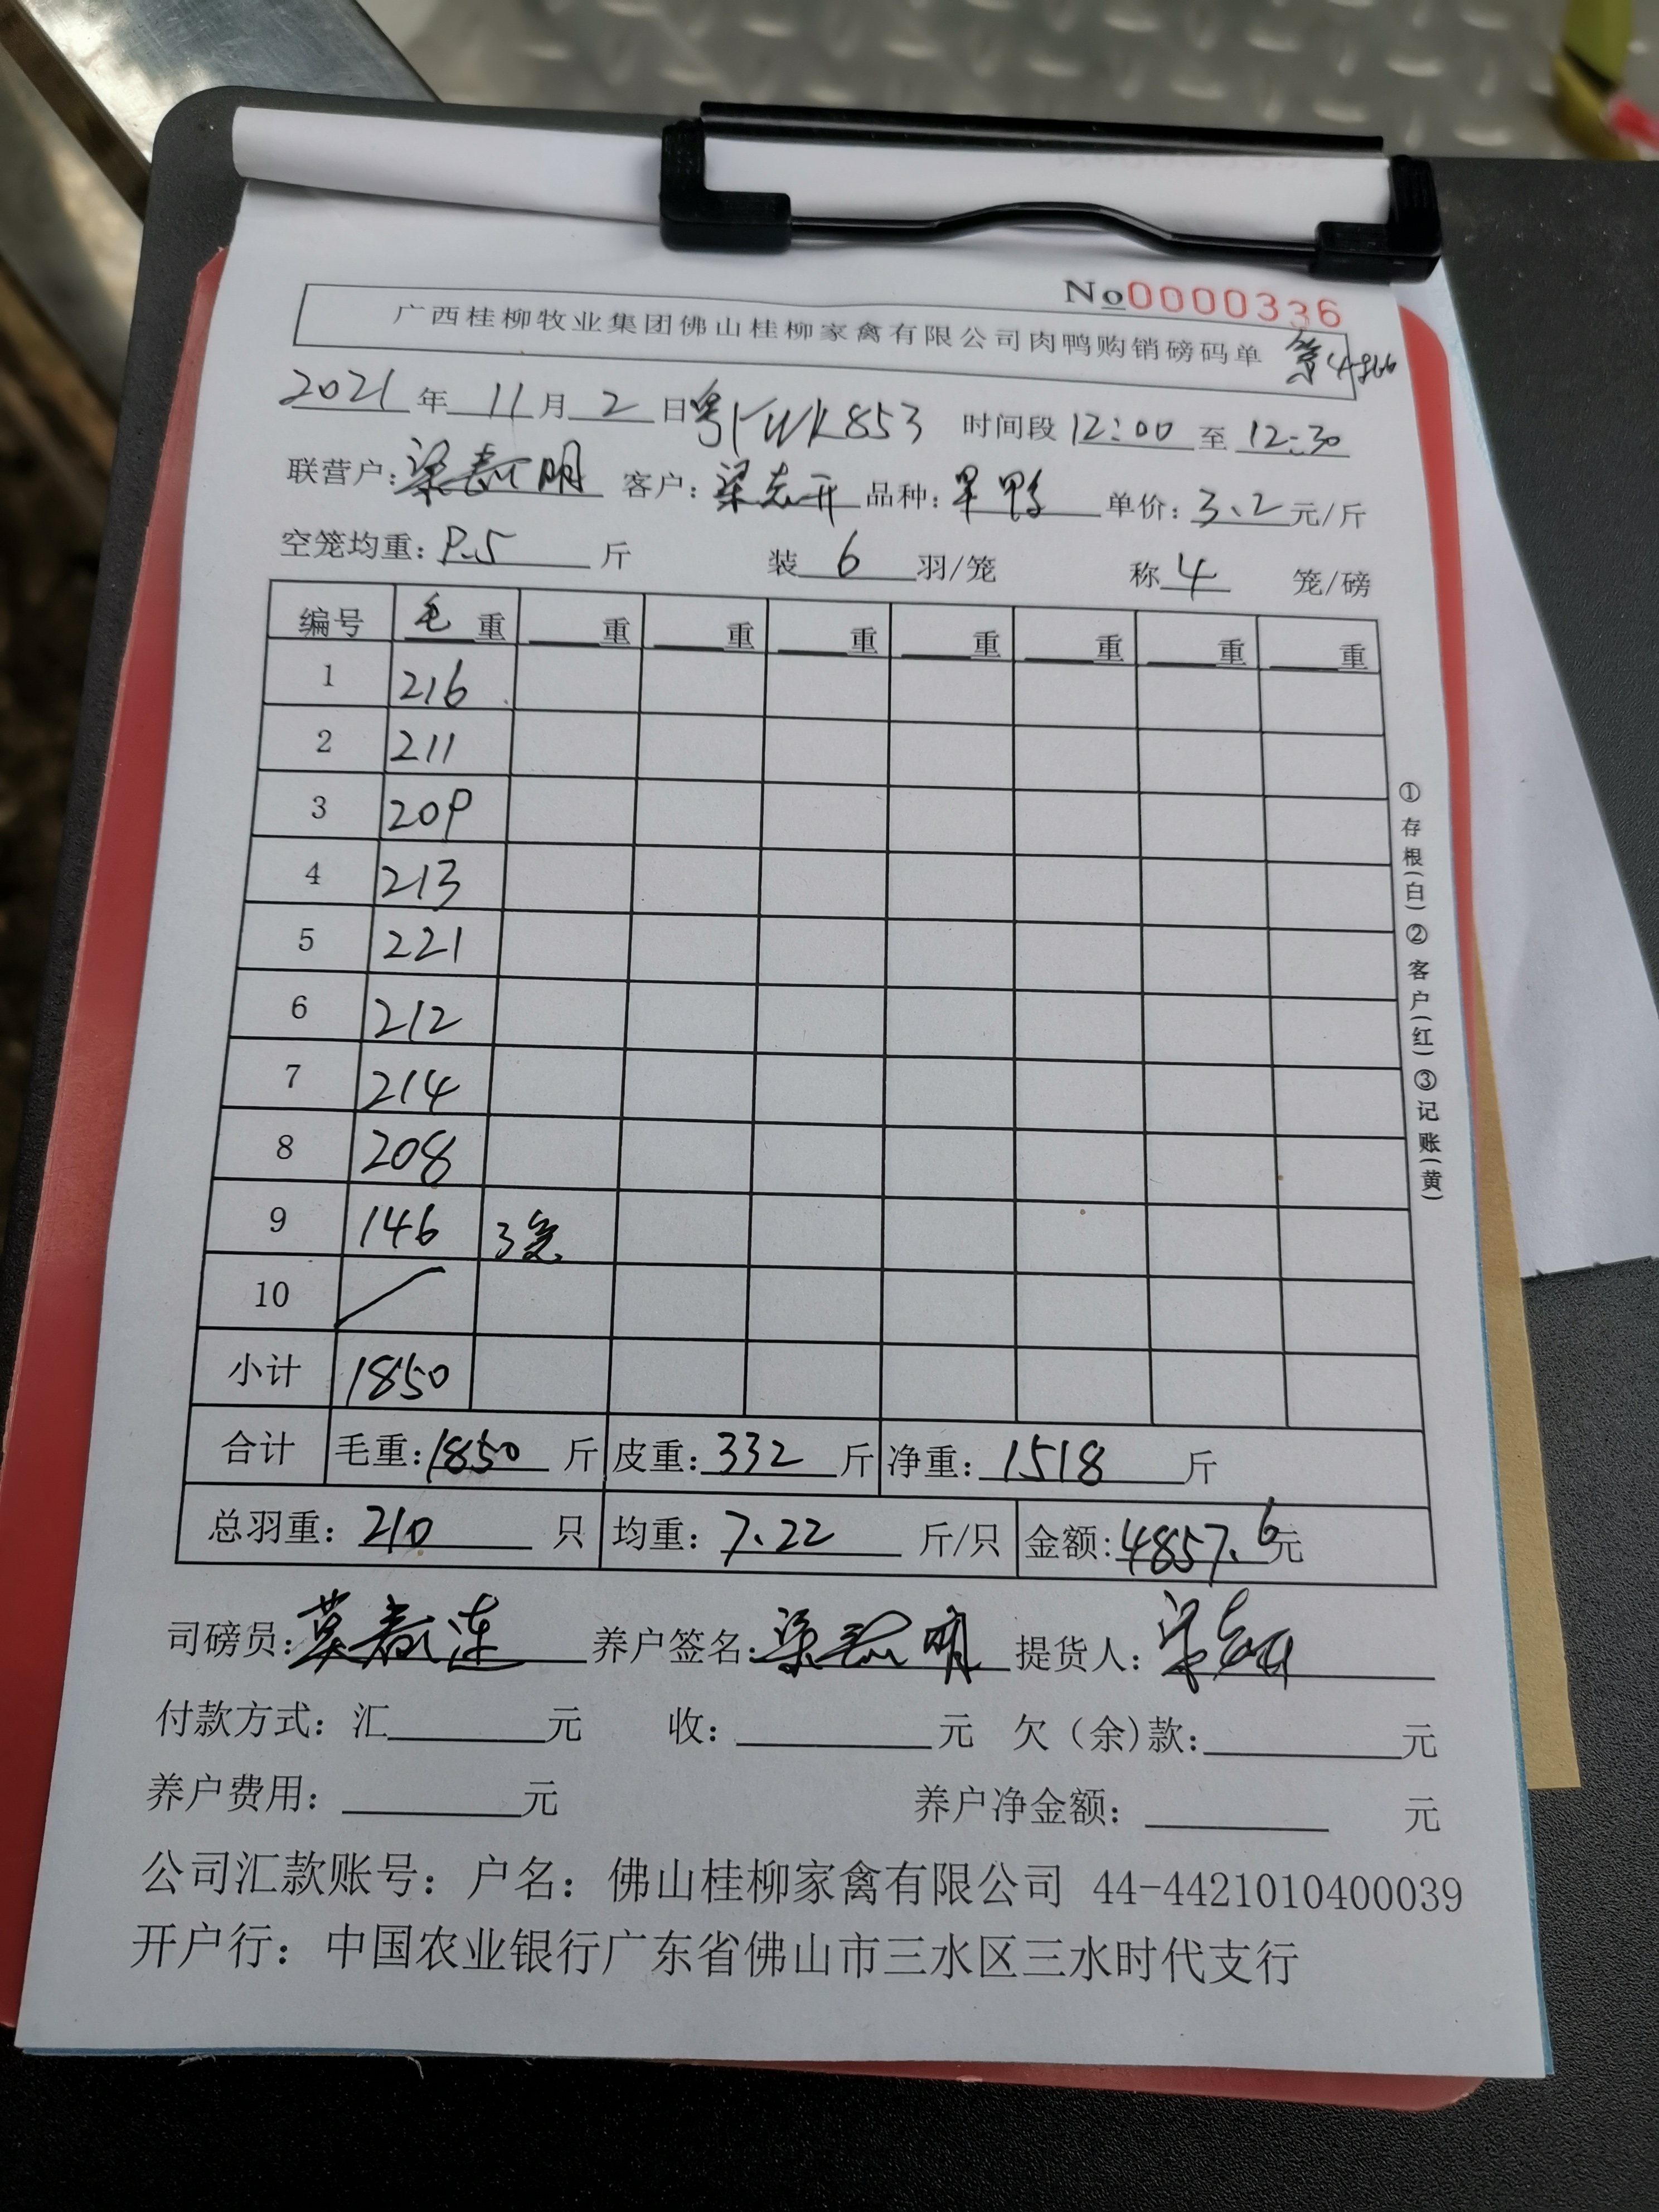 No0000336
广西桂柳牧业集团佛山桂柳家禽有限公司肉鸭购销磅码单 第4
2021年11月2日 粤 WK853 时间段12:00至12:30
联营户:梁 明 客户:梁志开 品种:旱鸭 单价:3.2元/斤
空笼均重:9.5斤 装6羽/笼 称4笼/磅
编号 毛重 重 重 重 重 重 重 重
1 216
2 211
3 209
4 213
5 221
6 212
7 214
8 208
9 146 3笼
10 /
小计 1850
合计 毛重:1850斤 皮重:332斤 净重:1518斤
总羽重:210只 均重:7.22斤/只 金额:4857.6元
司磅员:莫 连 养户签名:梁 明 提货人:
付款方式:汇 元 收: 元 欠(余)款: 元
养户费用: 元 养户净金额: 元
公司汇款账号:户名:佛山桂柳家禽有限公司 44-4421010400039
开户行:中国农业银行广东省佛山市三水区三水时代支行
①存根(白)②客户(红)③记账(黄)